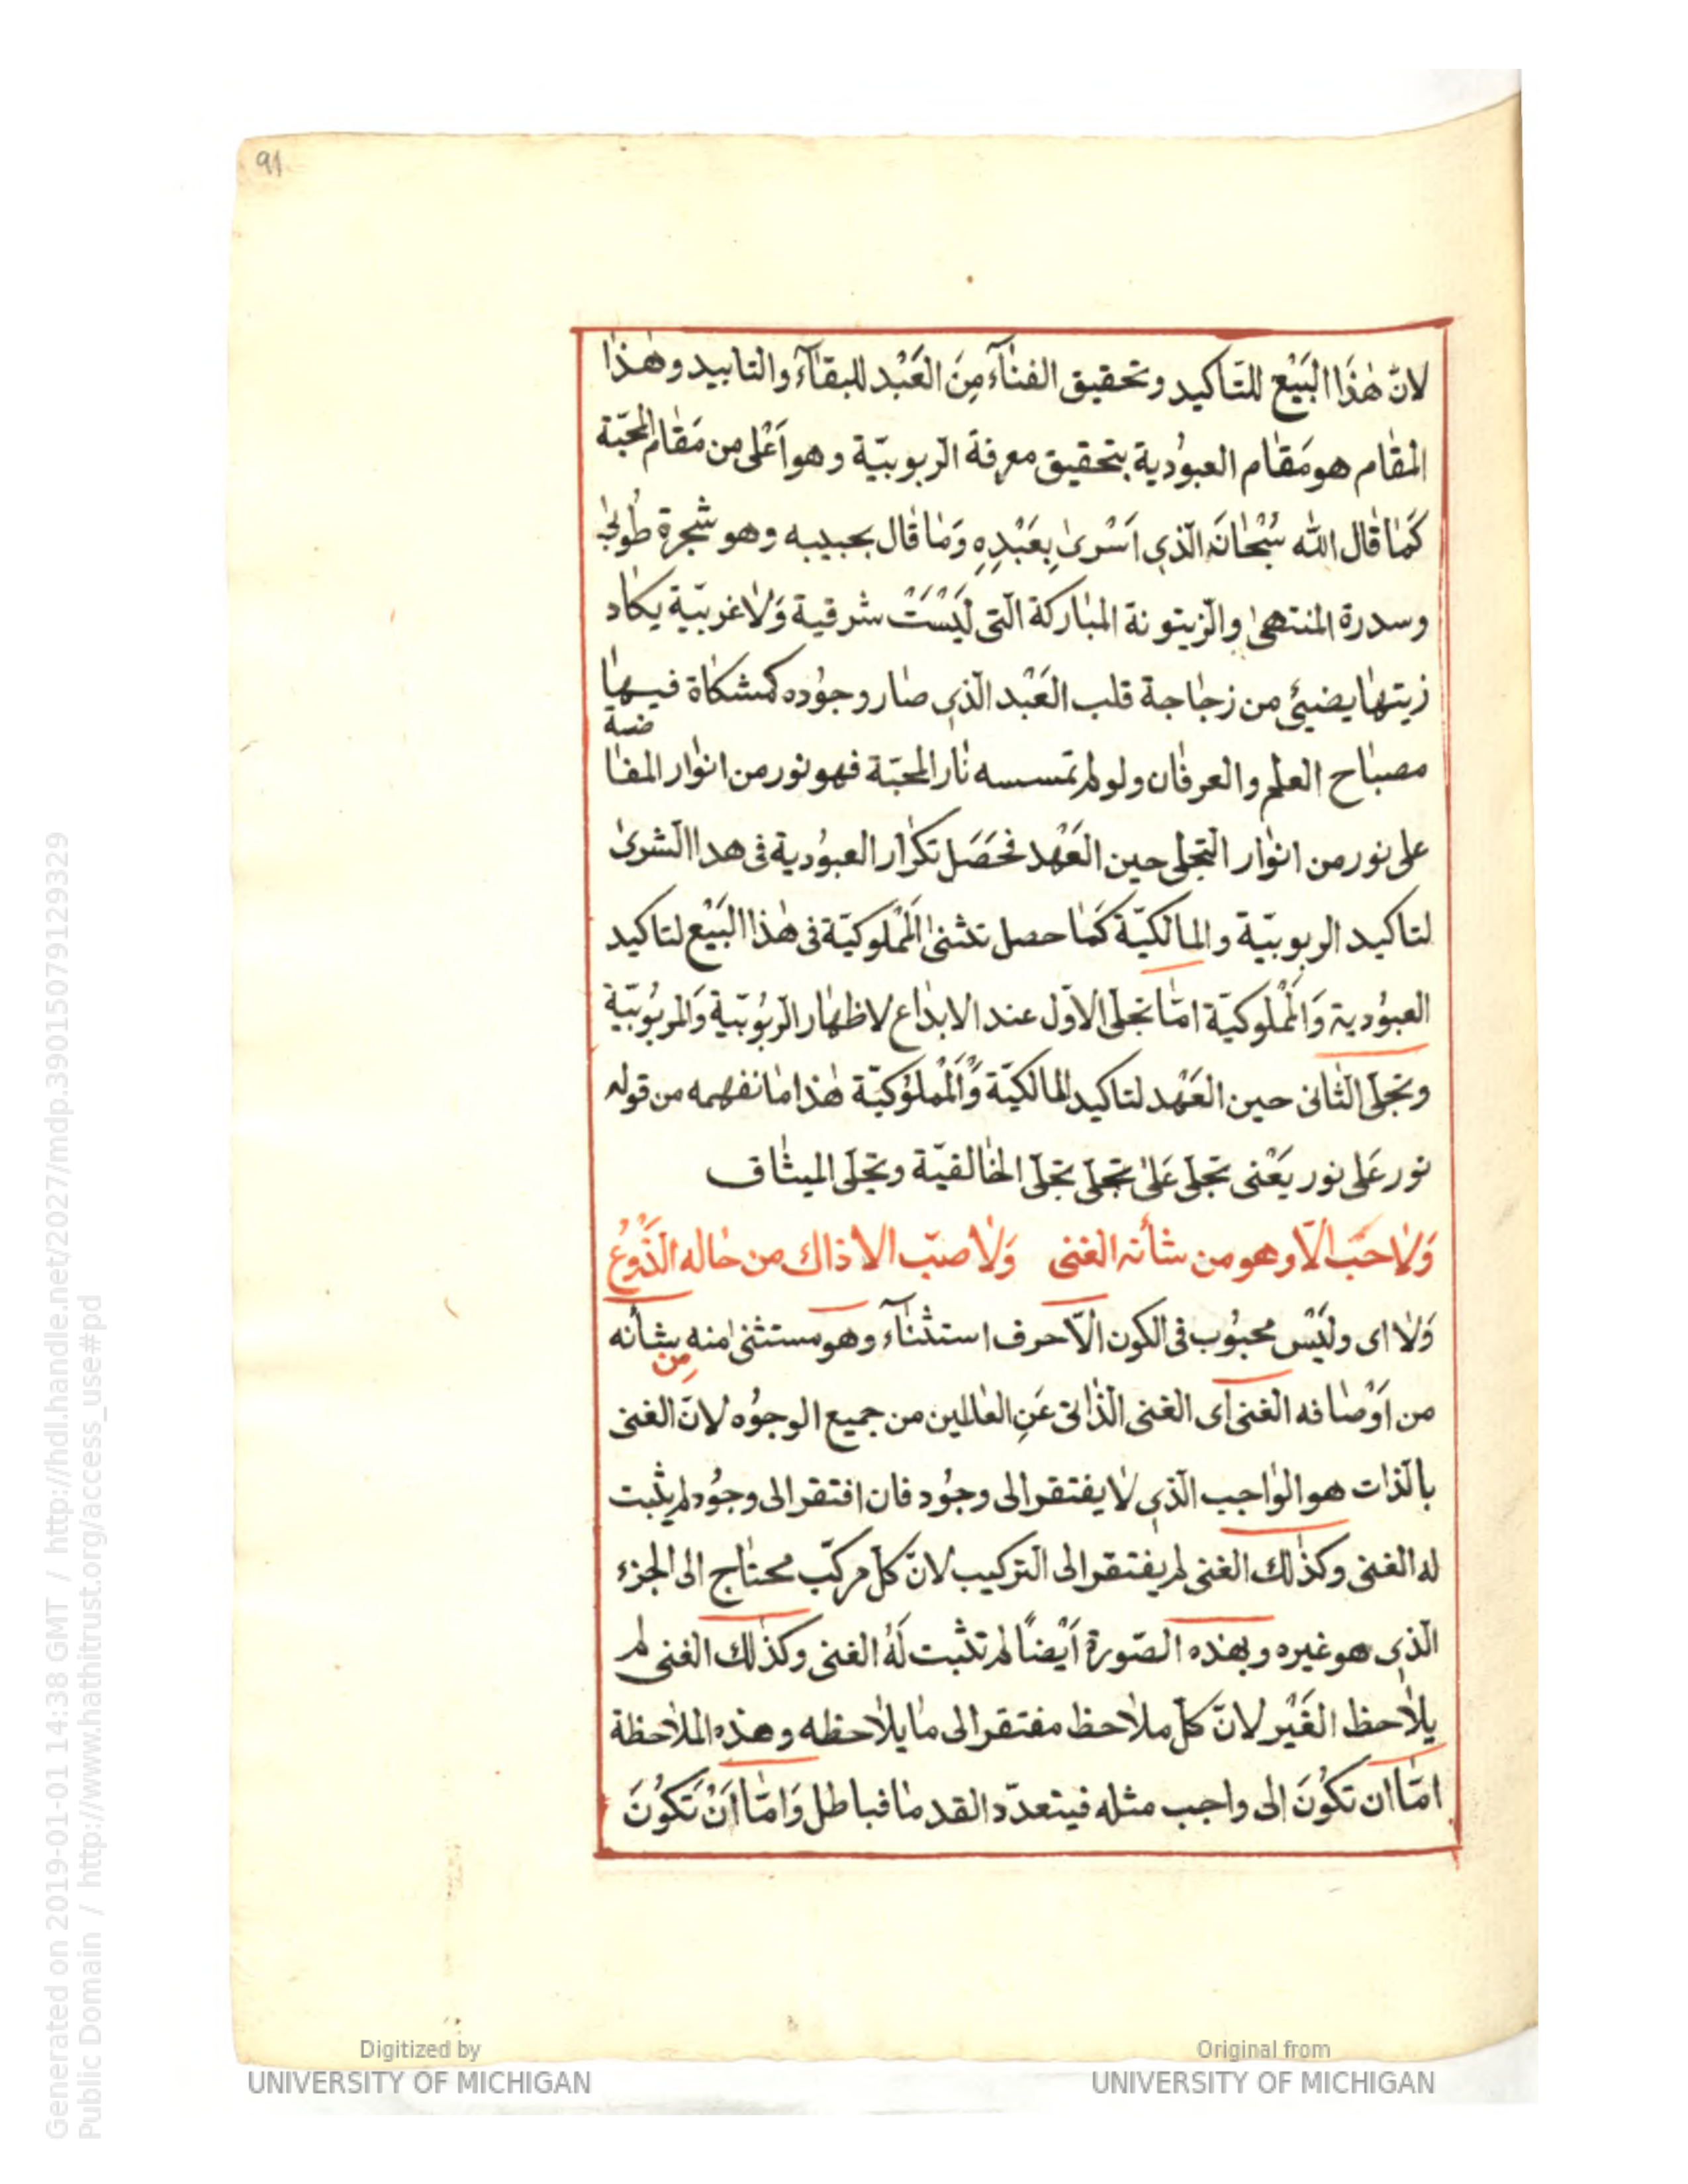 91
لانّ هٰذَا البَيْع للتّاكيد وتحقيق الفنآء مِنَ العَبْد للبقآء والتابيد وهٰذا
المقام هو مَقام العبوُدية بتحقيق معرفة الربوبيّة وهو اَعْلى من مَقام المحبّة
كَما قال الله سُبْحانَ الّذى اَسْرىٰ بِعَبْدِهِ وَما قال بحبيبه وهو شجرة طُوبىٰ
وسدرة المنتهىٰ والزيتونة المباركة الّتى لَيْسَتْ شرقية وَلا غربيّة يكاد
زيتها يضيئ من زجاجة قلب العَبْد الّذى صار وجوُده كمشكاة فيها
مصباح العلم والعرفان ولو لم تمسسه نار المحبّة فهو نور من انوار المفا
ضة
على نور من انوار التجلى حين العَهْد فحَصَل تكرار العبوُدية فى هدا الشرىٰ
لتاكيد الربوبيّة والمالكيّة كَما حصل تثنىٰ المَمْلوكيّة فى هٰذا البَيْع لتاكيد
العبوُدية وَالمَمْلوكيّة امّا تجلى الاوّل عند الابداع لاظهار الرّبُوبيّة وَالمربُوبيّة
وتجلى الثانى حين العَهْد لتاكيد المالكيّة وَالمَمْلوُكيّة هٰذا ما نفهمه من قوله
نور عَلى نور يَعْنى تجلى عَلىٰ تجلى تجلى الخالقيّة وتجلى الميثاق
وَلا حبّ الّا وهو من شأنه الغنى وَلا صبّ الا ذاك من حاله الذّروُعُ
وَلا اى ولَيْس محبُوب فى الكون الّا حرف استثنآء وهو مستثنىٰ منه من شأنه
من اَوْصافه الغنى اَى الغنى الذاتى عَنِ العالمين من جميع الوجوُه لانّ الغنى
بالذات هو الواجب الّذى لا يفتقر الى وجوُد فان افتقر الى وجوُد لم يثبت
له الغنى وكذٰلك الغنى لم يفتقر الى التركيب لانّ كلّ مركّب محتاج الى الجزء
الّذى هو غيره وبهٰذه الصّورة اَيْضًا لم تثبت لَهُ الغنى وكذٰلك الغنى لم
يلاحظ الغَيْر لانّ كلّ ملاحظ مفتقر الى ما يلاحظه وهذه الملاحظة
امّا ان تكُونَ الى واجب مثله فيتعدّد القدما فباطل وَامّا اَنْ تَكُونَ